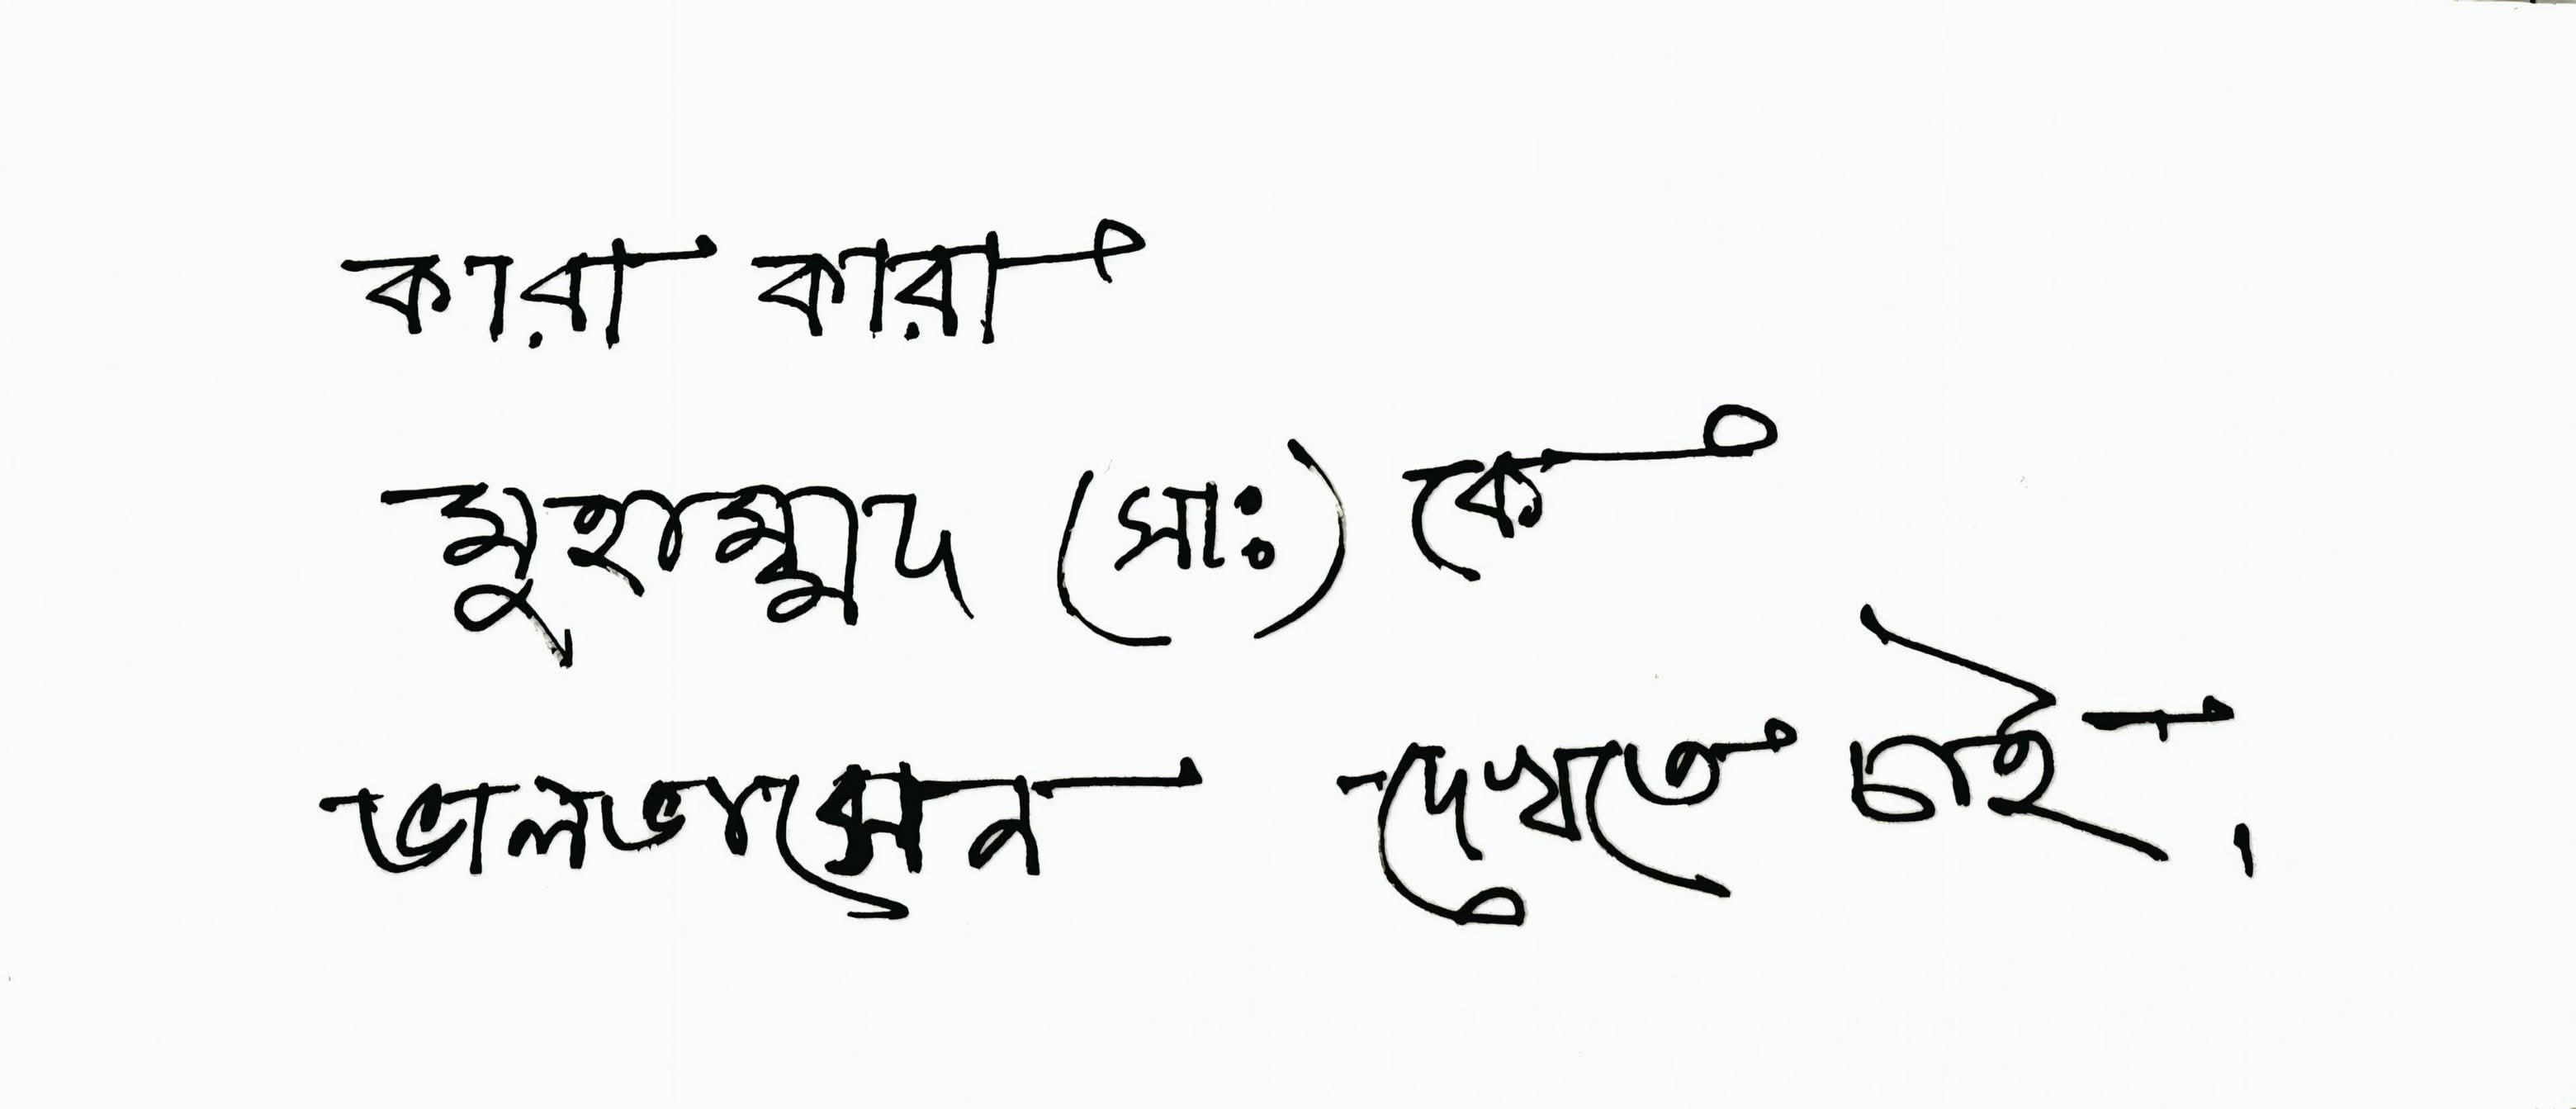 কারা কারা
মুহাম্মদ (সাঃ) কে
ভালভাসেন দেখতে চাই।